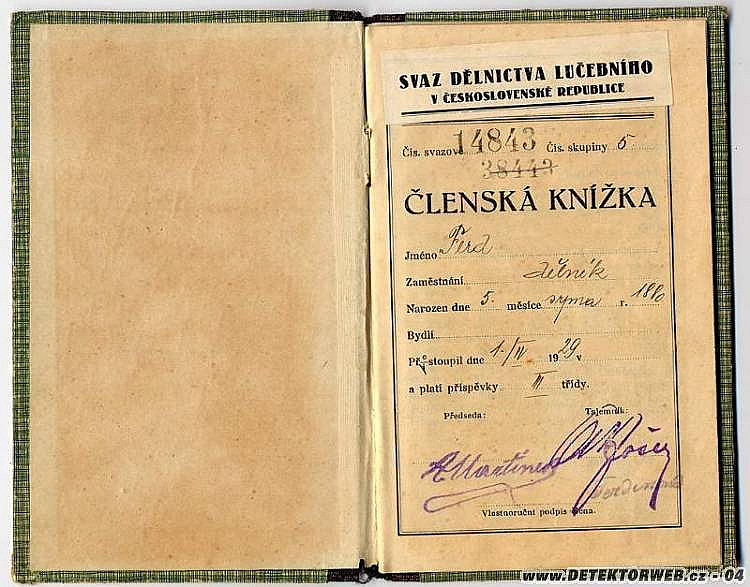 SVAZ DĚLNICTVA LUČEBNÍHO
V ČESKOSLOVENSKÉ REPUBLICE
Čís. svazové 14843 Čís. skupiny 5
38443
ČLENSKÁ KNÍŽKA
Jméno Ferd
Zaměstnání dělník
Narozen dne 5. měsíce r.
Bydlí
Při stoupil dne 1./IV 1929 v
a platí příspěvky III třídy.
Předseda: Tajemník:
Vlastnoruční podpis člena.
www.DETEKTORWEB.cz - 04